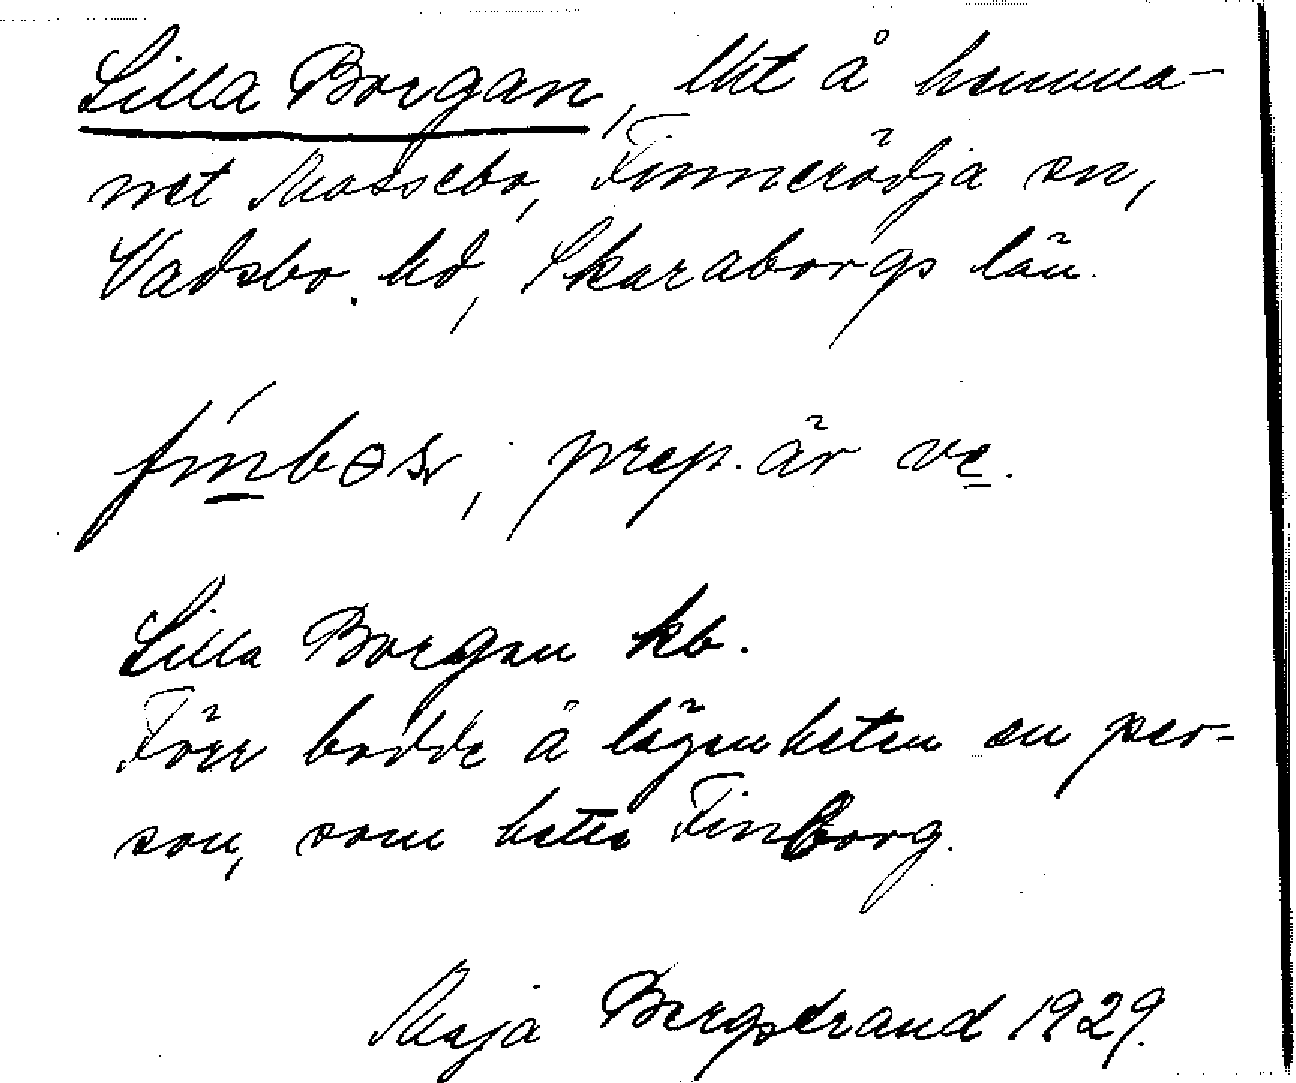 Lilla Borgan, lht å hemma-
net Mossebo, Finnerödja sn,
Vadsbo hd, Skaraborgs län.
prep. är ve.
Lilla Borgan kb.
Förr bodde å lägenheten en per-
son, som hette Finborg.
Maja Bergstrand 1929.